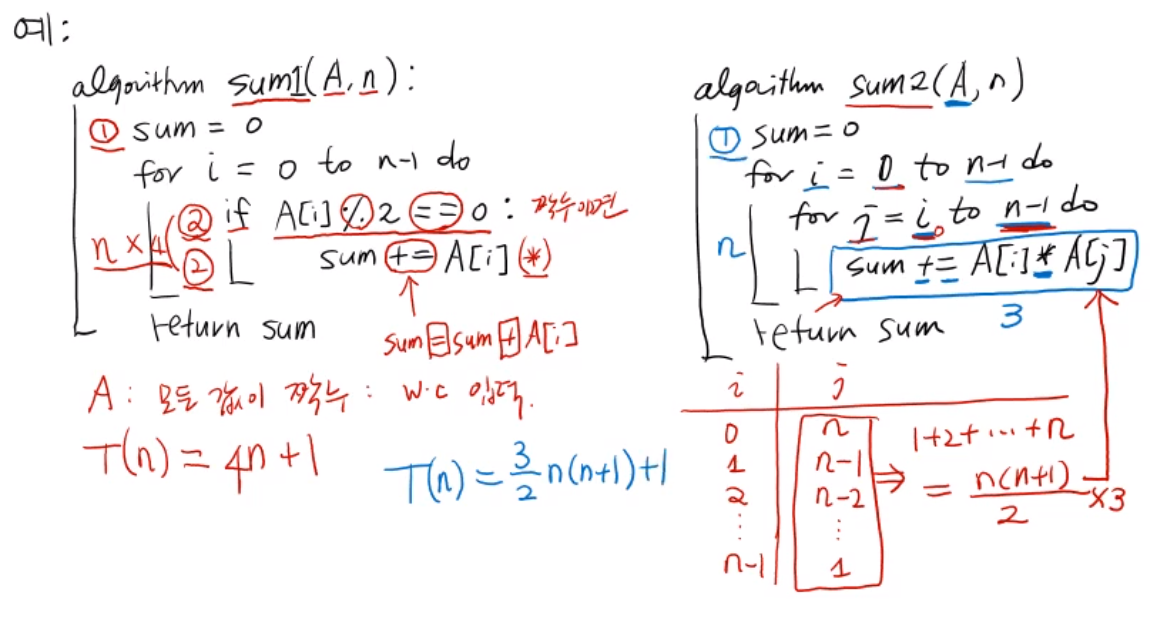 예:
algorithm sum1(A, n):
① sum = 0
for i = 0 to n-1 do
② if A[i] % 2 == 0 : 짝수이면
n × 4
② sum += A[i] (*)
return sum
sum = sum + A[i]
A : 모든 값이 짝수 : w.c 입력.
T(n) = 4n + 1
algorithm sum2(A, n)
① sum = 0
for i = 0 to n-1 do
for j = i to n-1 do
n
sum += A[i] * A[j]
3
return sum
i j
0 n
1 n-1
2 n-2
⋮ ⋮
n-1 1
⇒ 1+2+ ⋯ +n
= n(n+1)/2 ×3
T(n) = 3/2 n(n+1)+1